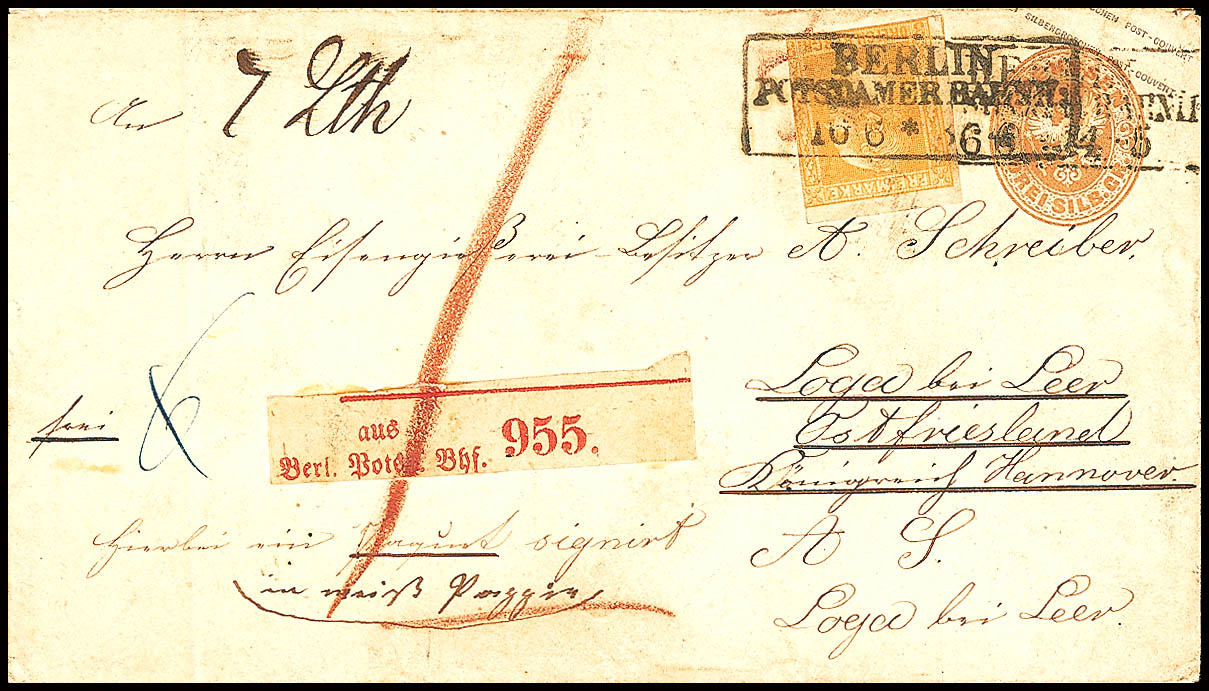 7 Lth
An
BERLIN
POTSDAMER BAHNH.
16 6 *
FREIMARKE
DREI SILB. GR.
POST-COUVERT
Herrn Eisengießerei-Besitzer A. Schreiber.
Loga bei Leer
frei 6
Ostfriesland
aus
Berl. Potsd. Bhf. 955.
Königreich Hannover.
Hierbei ein Paquet signirt
A S.
in weiß Pappier
Loga bei Leer.